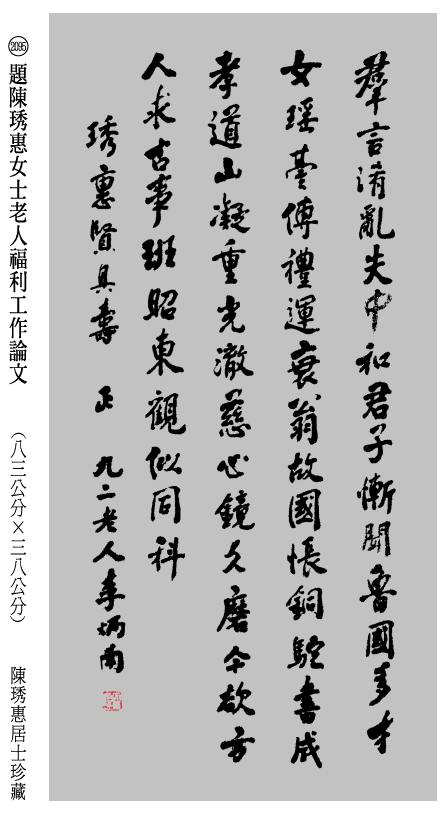 羣言淆亂失中和君子慚聞魯國多才
女瑶臺傳禮運衰翁故國悵銅駝書成
孝道山凝重光澈慈心鏡久磨今欲方
人求古事班昭東觀似同科
琇惠賢具壽 正 九二老人李炳南
2095 題陳琇惠女士老人福利工作論文 (八三公分×三八公分) 陳琇惠居士珍藏